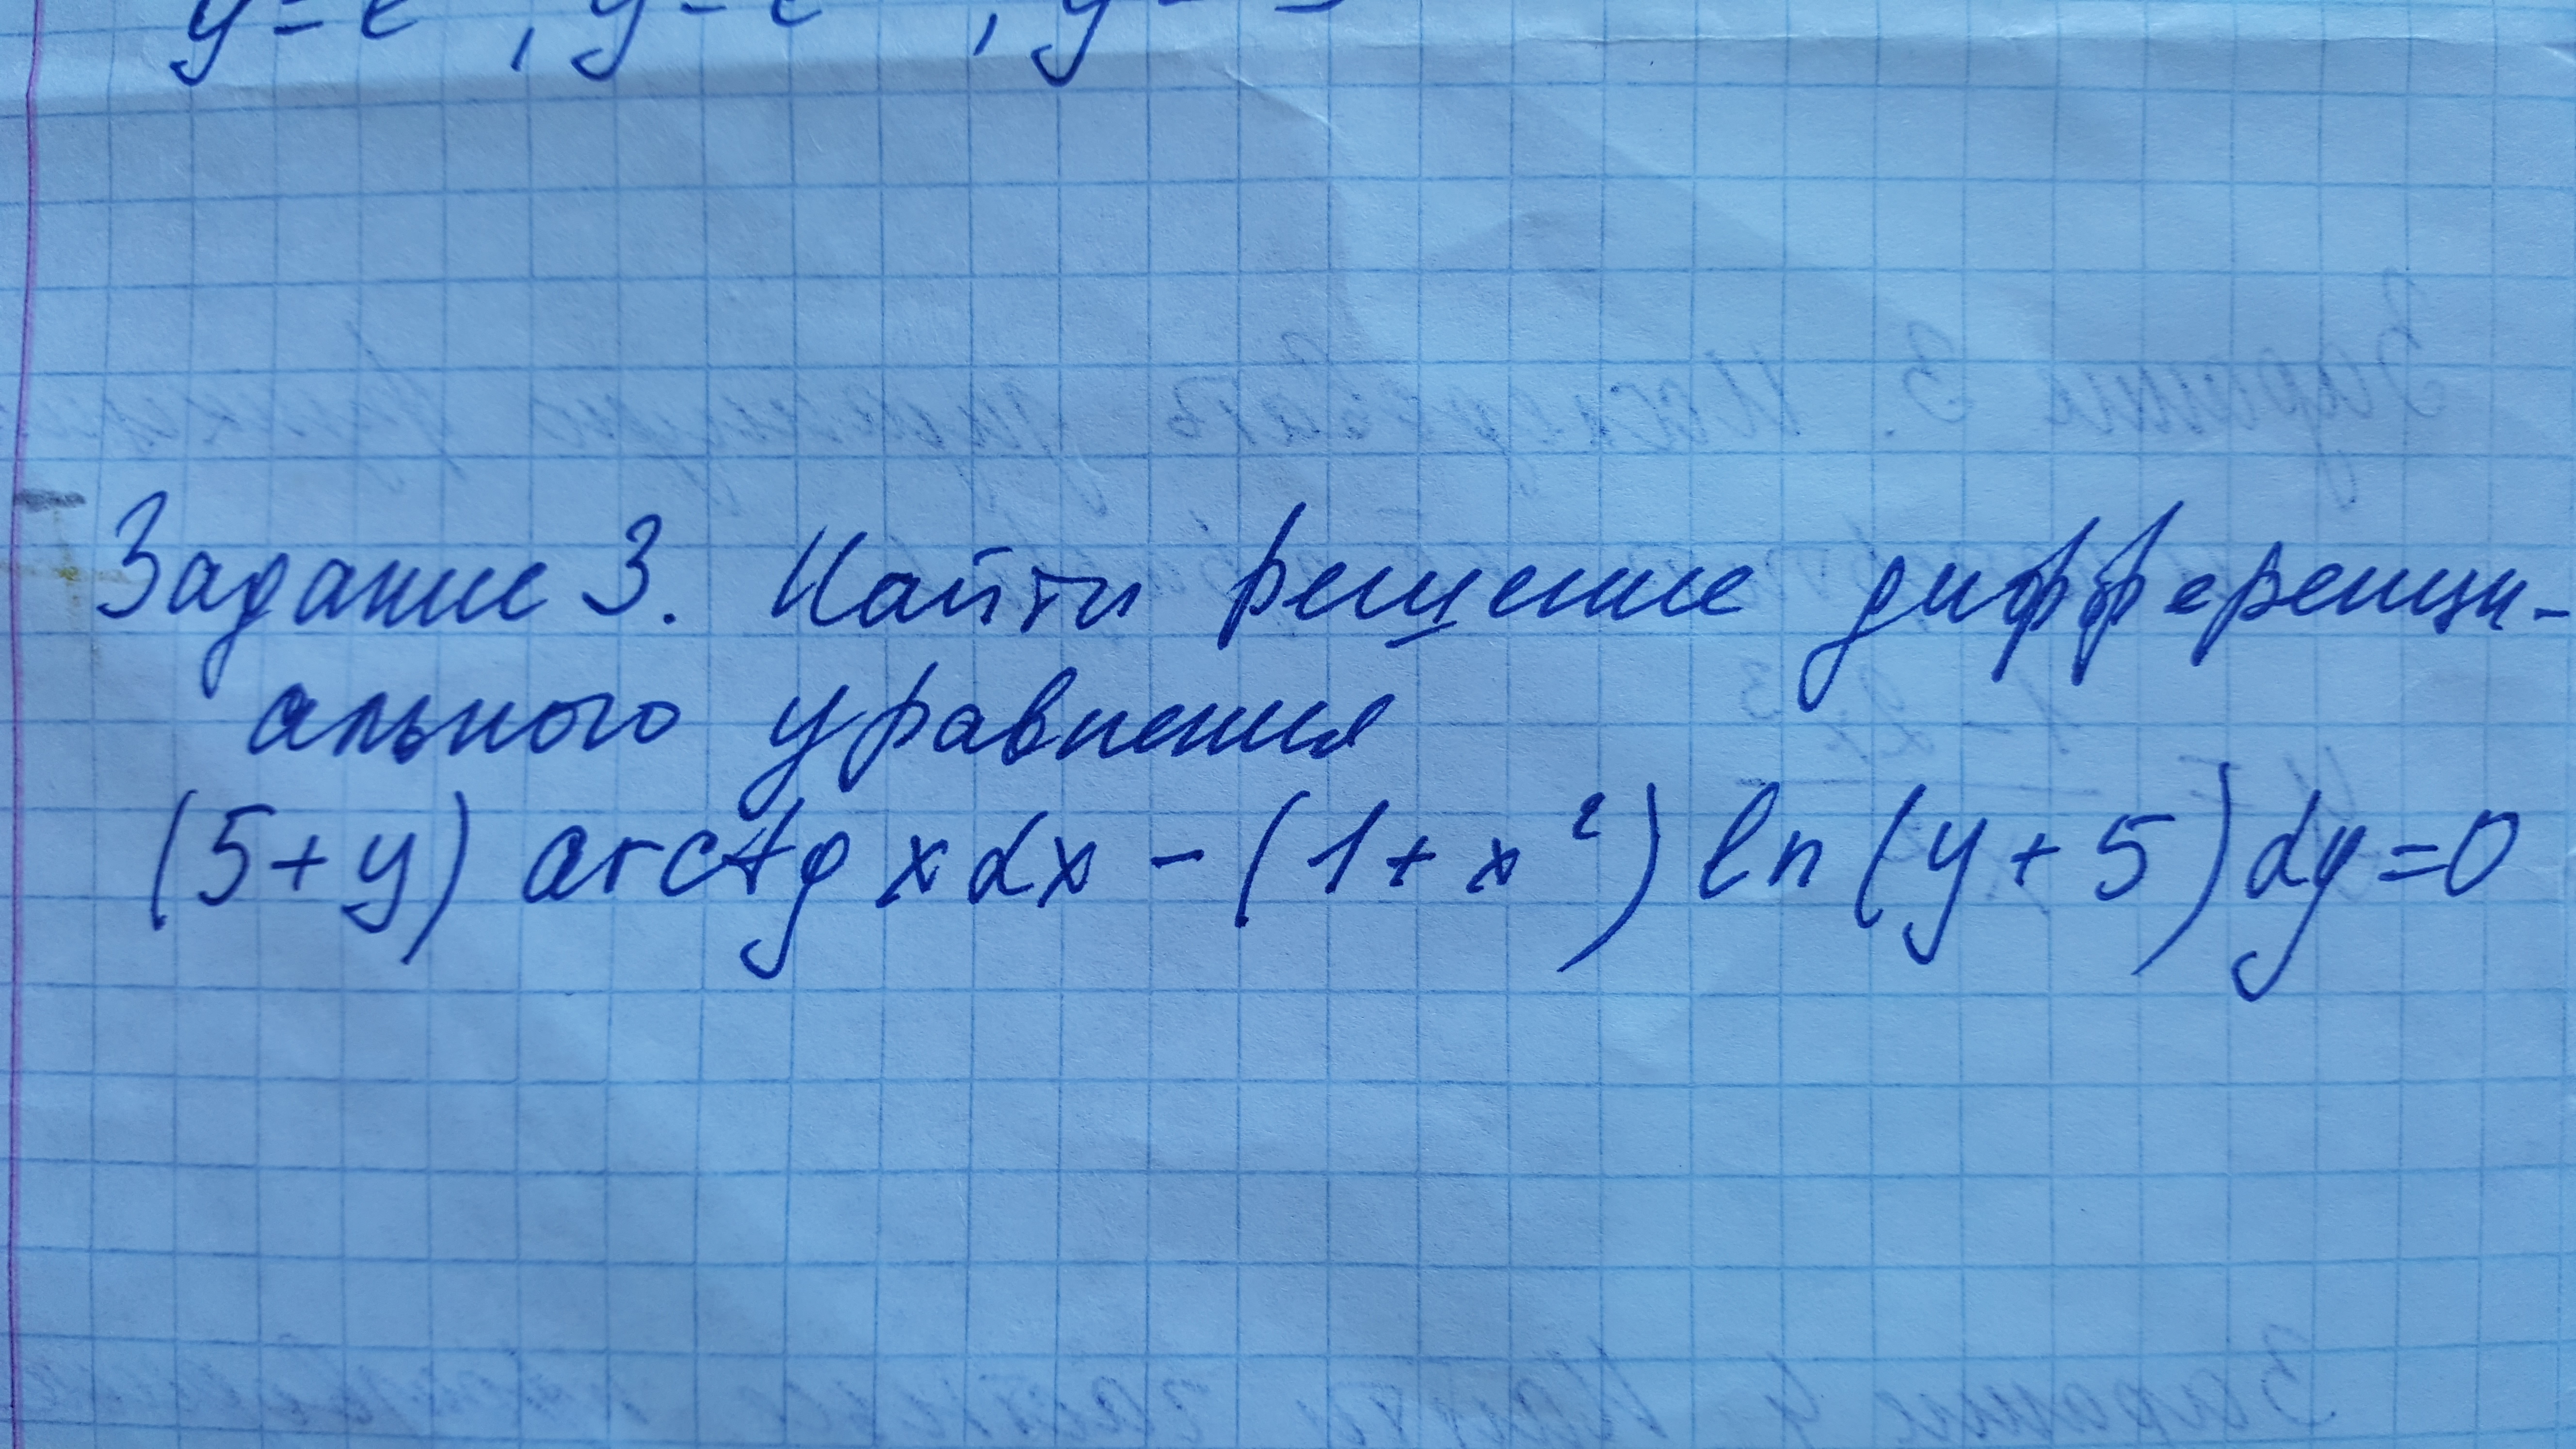 Задание 3. Найти решение дифференци-
ального уравнения
(5+y) arctg x dx - (1+x²) ln(y+5) dy=0